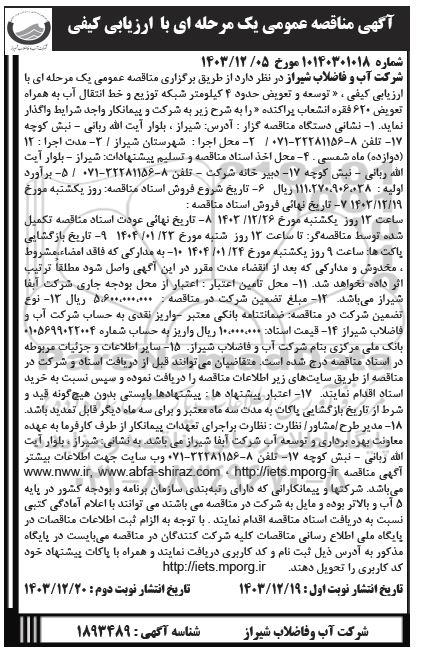 آگهی مناقصه عمومی یک مرحله ای با ارزیابی کیفی
شماره ۱۰۱۴۰۳۰۱۰۱۸ مورخ ۱۴۰۳/۱۲/۰۵
شرکت آب و فاضلاب شیراز در نظر دارد از طریق برگزاری مناقصه عمومی یک مرحله ای با
ارزیابی کیفی ، « توسعه و تعویض حدود ۴ کیلومتر شبکه توزیع و خط انتقال آب به همراه
تعویض ۶۲۰ فقره انشعاب پراکنده » را به شرح زیر به شرکت و پیمانکار واجد شرایط واگذار
نماید. ۱- نشانی دستگاه مناقصه گزار : آدرس: شیراز ، بلوار آیت الله ربانی - نبش کوچه
۱۷- تلفن ۸-۳۲۲۸۱۱۵۶-۰۷۱ / ۲- محل اجرا : شهرستان شیراز / ۳- مدت اجرا : ۱۲
(دوازده) ماه شمسی . ۴- محل اخذ اسناد مناقصه و تسلیم پیشنهادات: شیراز - بلوار آیت
الله ربانی - نبش کوچه ۱۷- دبیر خانه شرکت - تلفن ۸-۳۲۲۸۱۱۵۶-۰۷۱ / ۵- برآورد
اولیه : ۱۱۱.۲۷۰.۹۰۶.۰۲۸ ریال ۶- تاریخ شروع فروش اسناد مناقصه: روز یکشنبه مورخ
۱۴۰۳/۱۲/۱۹ ۷- تاریخ نهائی فروش اسناد مناقصه :
ساعت ۱۳ روز یکشنبه مورخ ۱۴۰۳/۱۲/۲۶ ۸- تاریخ نهائی عودت اسناد مناقصه تکمیل
شده توسط مناقصه‌گر: تا ساعت ۱۳ روز شنبه مورخ ۱۴۰۴/۰۱/۲۳ ۹- تاریخ بازگشایی
پاکت ها: ساعت ۹ روز یکشنبه مورخ ۱۴۰۴/۰۱/۲۴ ۱۰- به مدارکی که فاقد امضاء،مشروط
، مخدوش و مدارکی که بعد از انقضاء مدت مقرر در این آگهی واصل شود مطلقاً ترتیب
اثر داده نخواهد شد. ۱۱- محل تامین اعتبار : اعتبار از محل بودجه جاری شرکت آبفا
شیراز می‌باشد. ۱۲- مبلغ تضمین شرکت در مناقصه: ۵.۶۰۰.۰۰۰.۰۰۰ ریال ۱۳- نوع
تضمین شرکت در مناقصه: ضمانتنامه بانکی معتبر -واریز نقدی به حساب شرکت آب و
فاضلاب شیراز ۱۴- قیمت اسناد: ۱۰.۰۰۰.۰۰۰ ریال واریز به حساب شماره ۰۱۰۵۶۹۹۰۲۲۰۰۴
بانک ملی مرکزی بنام شرکت آب و فاضلاب شیراز. ۱۵- سایر اطلاعات و جزئیات مربوطه
در اسناد مناقصه درج شده است. متقاضیان می‌توانند قبل از دریافت اسناد و شرکت در
مناقصه از طریق سایت‌های زیر اطلاعات مناقصه را دریافت نموده و سپس نسبت به خرید
اسناد اقدام نمایند. ۱۷- اعتبار پیشنهاد ها : پیشنهادها بایستی بدون هیچ‌گونه قید و
شرط از تاریخ بازگشایی پاکات به مدت سه ماه معتبر و برای سه ماه دیگر قابل تمدید باشد.
۱۸- مدیر طرح/مشاور/ نظارت : نظارت براجرای تعهدات پیمانکار از طرف کارفرما به عهده
معاونت بهره برداری و توسعه آب شرکت آبفا شیراز می باشد. به نشانی: شیراز ، بلوار آیت
الله ربانی - نبش کوچه ۱۷- تلفن ۸-۳۲۲۸۱۱۵۶-۰۷۱ وب سایت جهت اطلاعات بیشتر
آگهی مناقصه www.nww.ir, www.abfa-shiraz.com , http://iets.mporg-ir
می‌باشد. شرکتها و پیمانکارانی که دارای رتبه‌بندی سازمان برنامه و بودجه کشور در پایه
۵ آب و بالاتر بوده و مایل به شرکت در مناقصه می باشند می توانند با اعلام آمادگی کتبی
نسبت به دریافت اسناد مناقصه اقدام نمایند . با توجه به الزام ثبت اطلاعات مناقصات در
پایگاه ملی اطلاع رسانی مناقصات کلیه شرکت کنندگان در مناقصه می‌بایست در پایگاه
مذکور به آدرس ذیل ثبت نام و کد کاربری دریافت نمایند و همراه با پاکات پیشنهاد خود
کد کاربری را تحویل دهند. http://iets.mporg.ir
تاریخ انتشار نوبت اول : ۱۴۰۳/۱۲/۱۹ تاریخ انتشار نوبت دوم : ۱۴۰۳/۱۲/۲۰
شرکت آب وفاضلاب شیراز شناسه آگهی : ۱۸۹۳۴۸۹